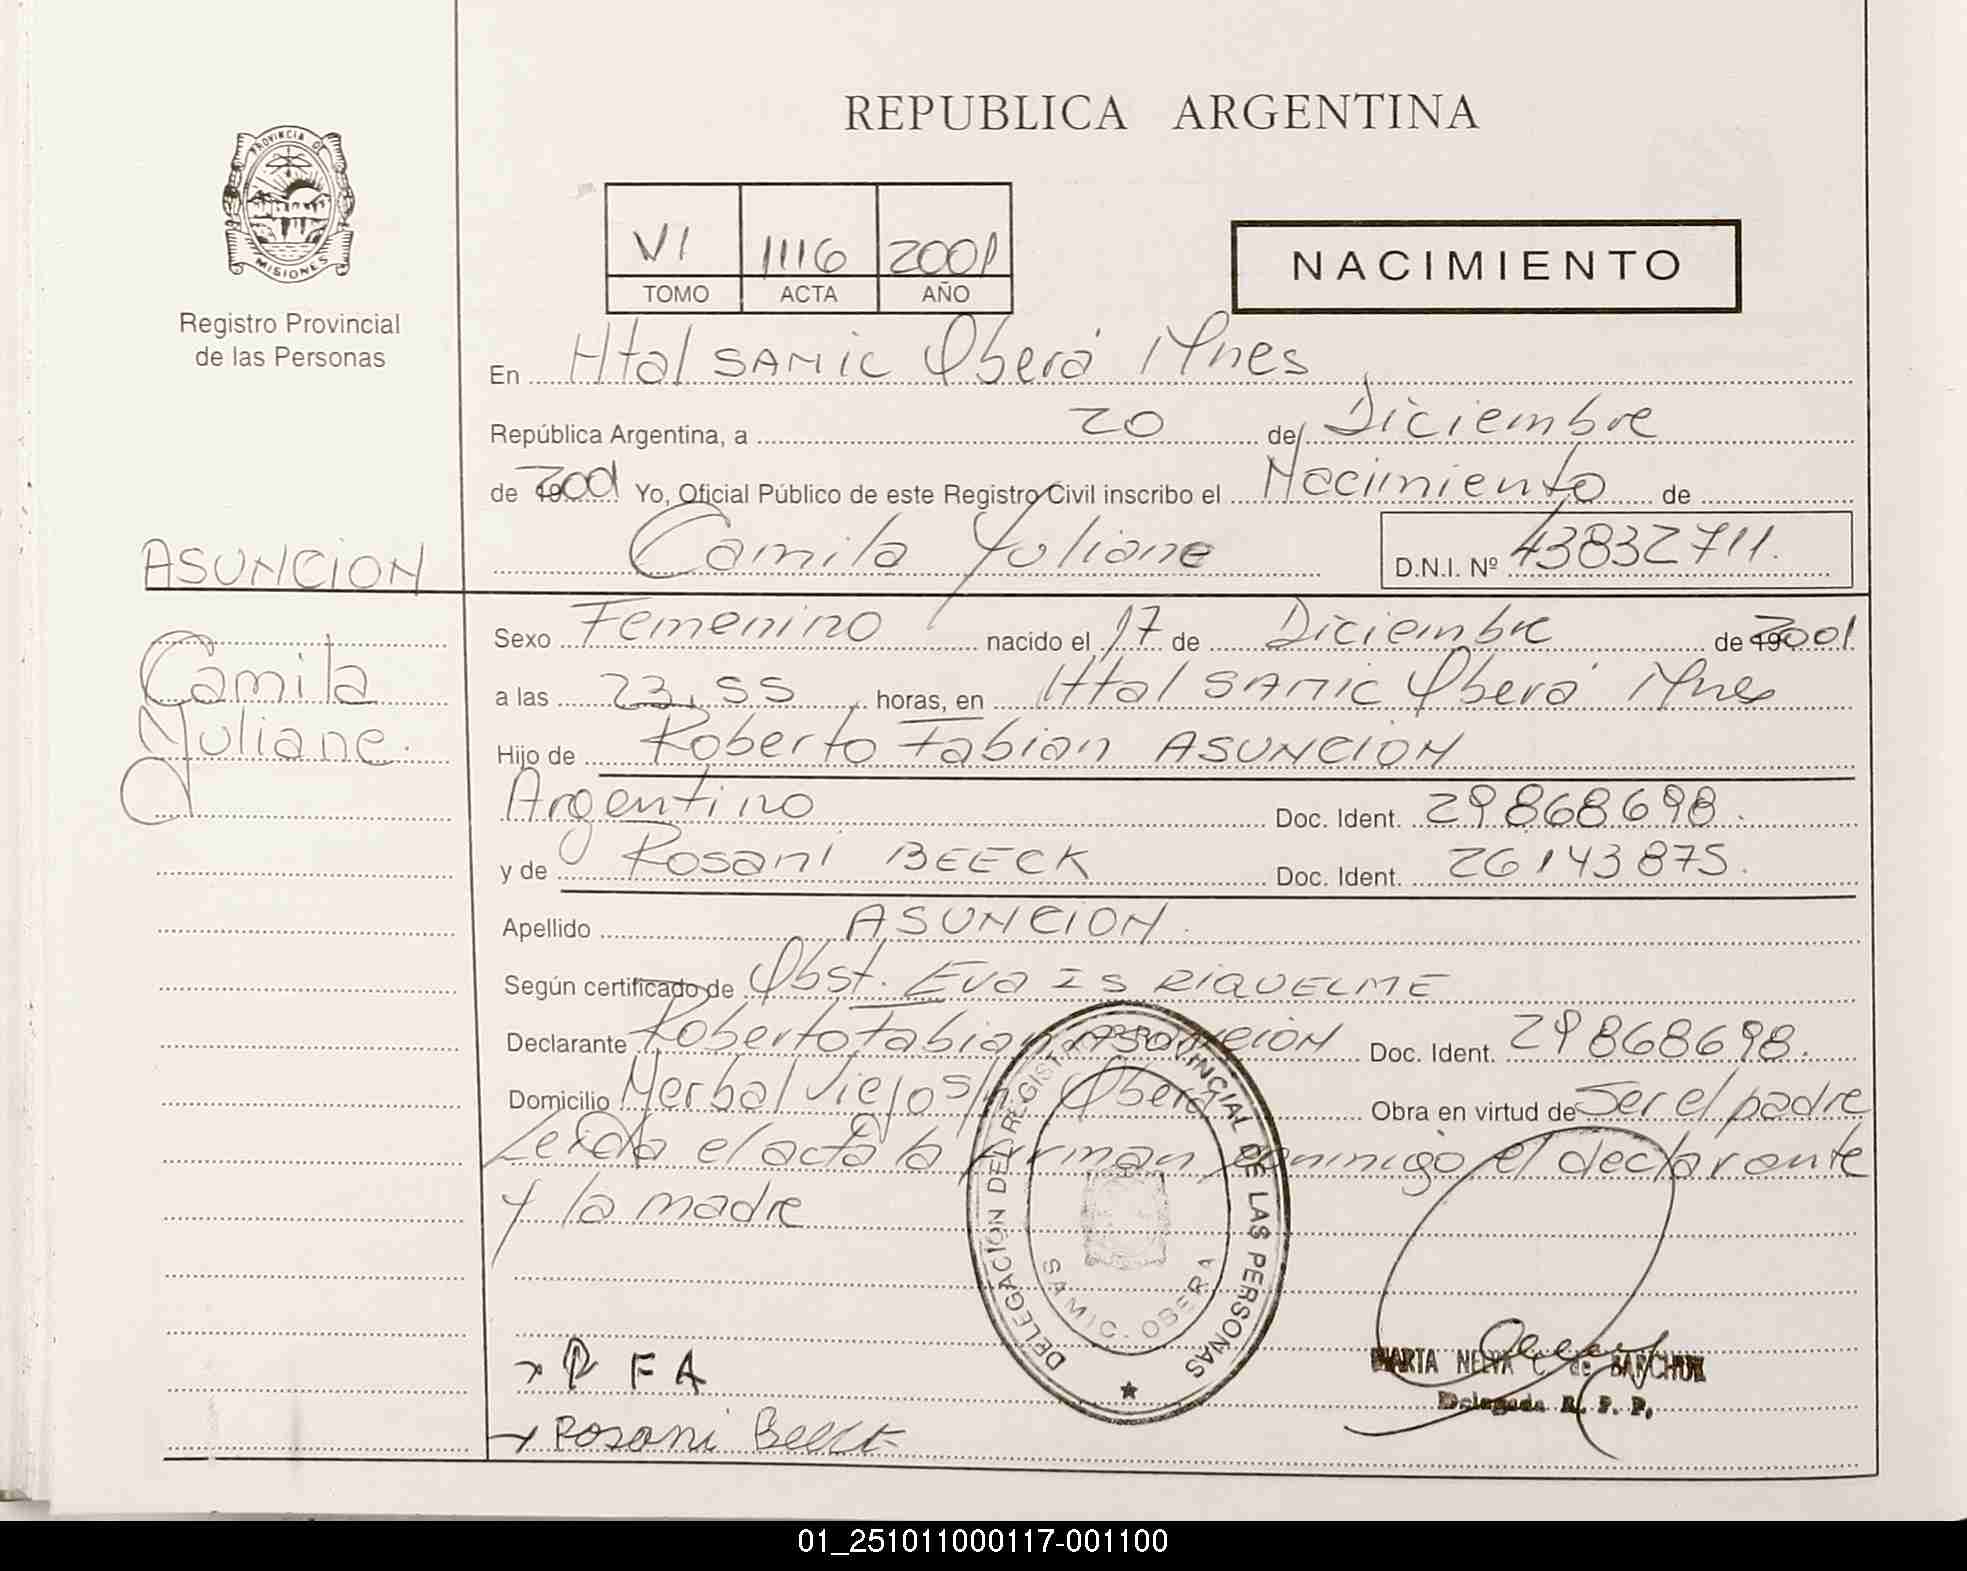 REPUBLICA ARGENTINA
PROVINCIA DE
MISIONES
Registro Provincial
de las Personas
VI 1116 2001
TOMO ACTA AÑO
NACIMIENTO
En Htal SAMIC Oberá Mnes
República Argentina, a 20 de Diciembre
de 2001 Yo, Oficial Público de este Registro Civil inscribo el Nacimiento de
Camila Yuliane D.N.I. Nº 43832711.
ASUNCION
Camila
Yuliane.
Sexo Femenino nacido el 17 de Diciembre de 2001
a las 23,55 horas, en Htal SAMIC Oberá Mnes
Hijo de Roberto Fabian ASUNCION
Argentino Doc. Ident. 29868698.
y de Rosani BEECK Doc. Ident. 26143875.
Apellido ASUNCION.
Según certificado de Obst. Eva IS RIQUELME
Declarante Roberto Fabian ASUNCION Doc. Ident. 29868698.
Domicilio Yerbal Viejo S/n Oberá Obra en virtud de Ser el padre
Leída el acta la firman conmigo el declarante
y la madre
DELEGACIÓN DEL REGISTRO PROVINCIAL DE LAS PERSONAS
SAMIC. OBERA
R F A
Rosani Beeck
MARTA NELVA C. de
Delegada R. P. P.
01_251011000117-001100